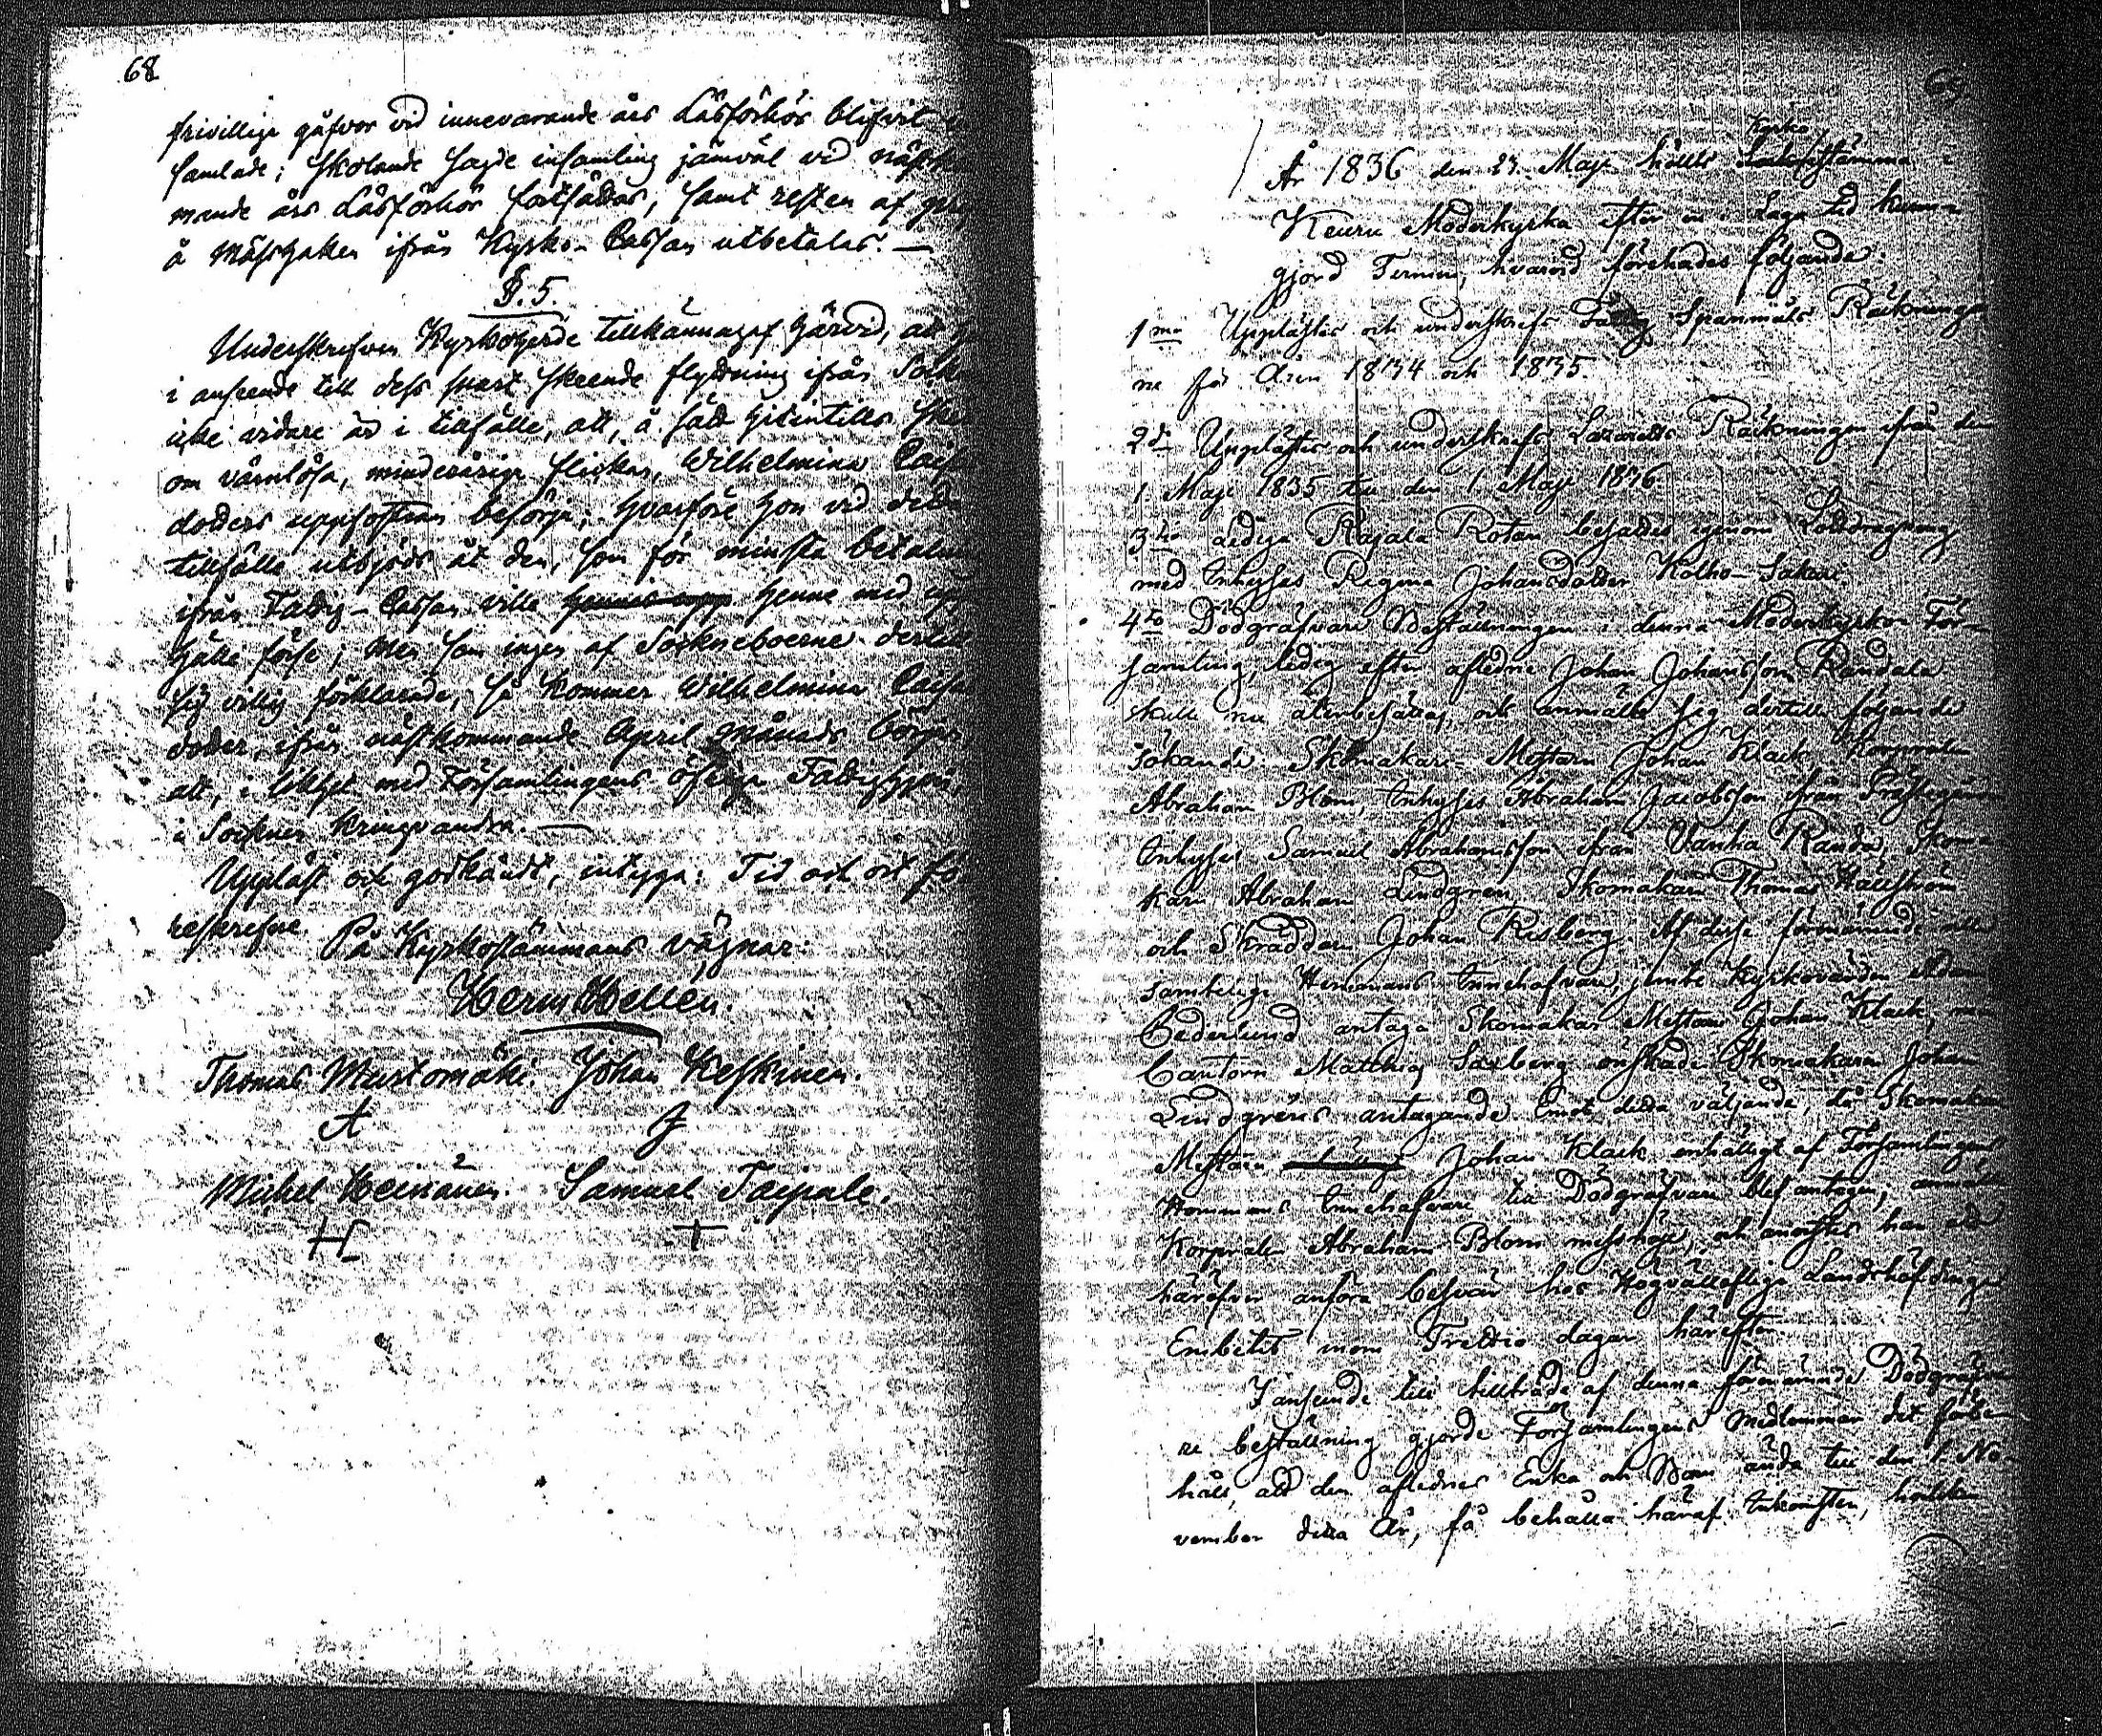 68
frivillige gåfvor vid innevarande års Läsförhör blifvit
samlade; skolande sagde insamling jämväl vid nästkom
mande års Läsförhör fortsättas, samt resten af
å Mässhaken ifrån Kyrko-Cassan utbetalas. —
§. 5.
Underskrefven Kyrkoherde tillkännagaf härvid, att
i anseende till dess snart skeende flyttning ifrån Sock
icke vidare är i tillfälle, att, å sätt hitintills
om värnlösa, minderåriga flickan, Wilhelmina Caisa
dotters uppfostran besörja; hvarföre hon vid detta
tillfälle utbjöds åt den, som för minsta betalning
ifrån Fattig-Cassan ville hennes upp henne med
hälle förse; Men som ingen af Sockneboerne dertill
sig villig förklarade, så kommer Wilhelmina Caisa
dotter, ifrån nästkommande April Månads början,
att, i likhet med Församlingens öfriga Fattighjon,
i Socknen kringvandra. —
Uppläst och godkändt, intyga: Tid och ort fö
reskrefne.
På Kyrkostämmans vägnar:
Herm Hellén.
Thomas Mustomäki. Johan Keskinen.
A J
Michel Heinänen. Samuel Taipale.
H +
69.
Kyrko
År 1836 den 23 Maji hölls Sockostämma i
Keuru Moderkyrka efter en i Laga tid kunn-
gjord Termin, hvarvid förehades följande:
1mo Upplästes och underskrefs Fattig Spanmåls Räkningar
ne för Åren 1834 och 1835.
2do Upplästes och underskrefs Lazaretts Räkningen ifrån den
1 Maji 1835 till den 1 Maji 1836
3tio Lediga Rajala Rotan besattes genom Lottdragning
med Inhyses Regina Johansdotter Kolho-Sakari.
4to Dödgräfvare Beställningen i denna Moderkyrko För-
samling, ledig efter aflidne Johan Johansson Randala
skulle nu återbesättas, och anmälte sig dertill följande
sökande: Skomakare-Mestarn Johan Klack, Korporalen
Abraham Blom, Inhyses Abraham Jacobsson ifrån Prästegården
Inhyses Samuel Abrahamsson ifrån Vanha Randa, Skoma
karn Abraham Lindgren, Skomakarn Thomas Hallström
och Skräddarn Johan Risberg. Af desse förenämnde ville
samtelige Hemmans Innehafvare, jemte Kyrkovärden Adam
Cederlund antaga Skomakar Mestarn Johan Klack, men
Cantorn Matthias Saxberg önskade Skomakarn Johan
Lindgrens antagande. Emot detta väljande, då Skomakare
Mestarn Johan Klack enhälligt af Församlingens
Hemmans Innehafvare till Dödgräfvare blef antagen, anmälte
Korporalen Abraham Blom misshöje, och anvistes han att
häröfver anföra besvär hos Högvällofliga Landshöfdinge
Embetet inom Trettio dagar härefter.
I anseende till tillträde af denna förenämnde Dödgräfva
re beställning gjorde Församlingens Medlemmar det förbe-
håll, att den aflidnes Enka och Barn ända till den 1 No-
vember detta År, få behålla häraf Inkomsten, hvilken